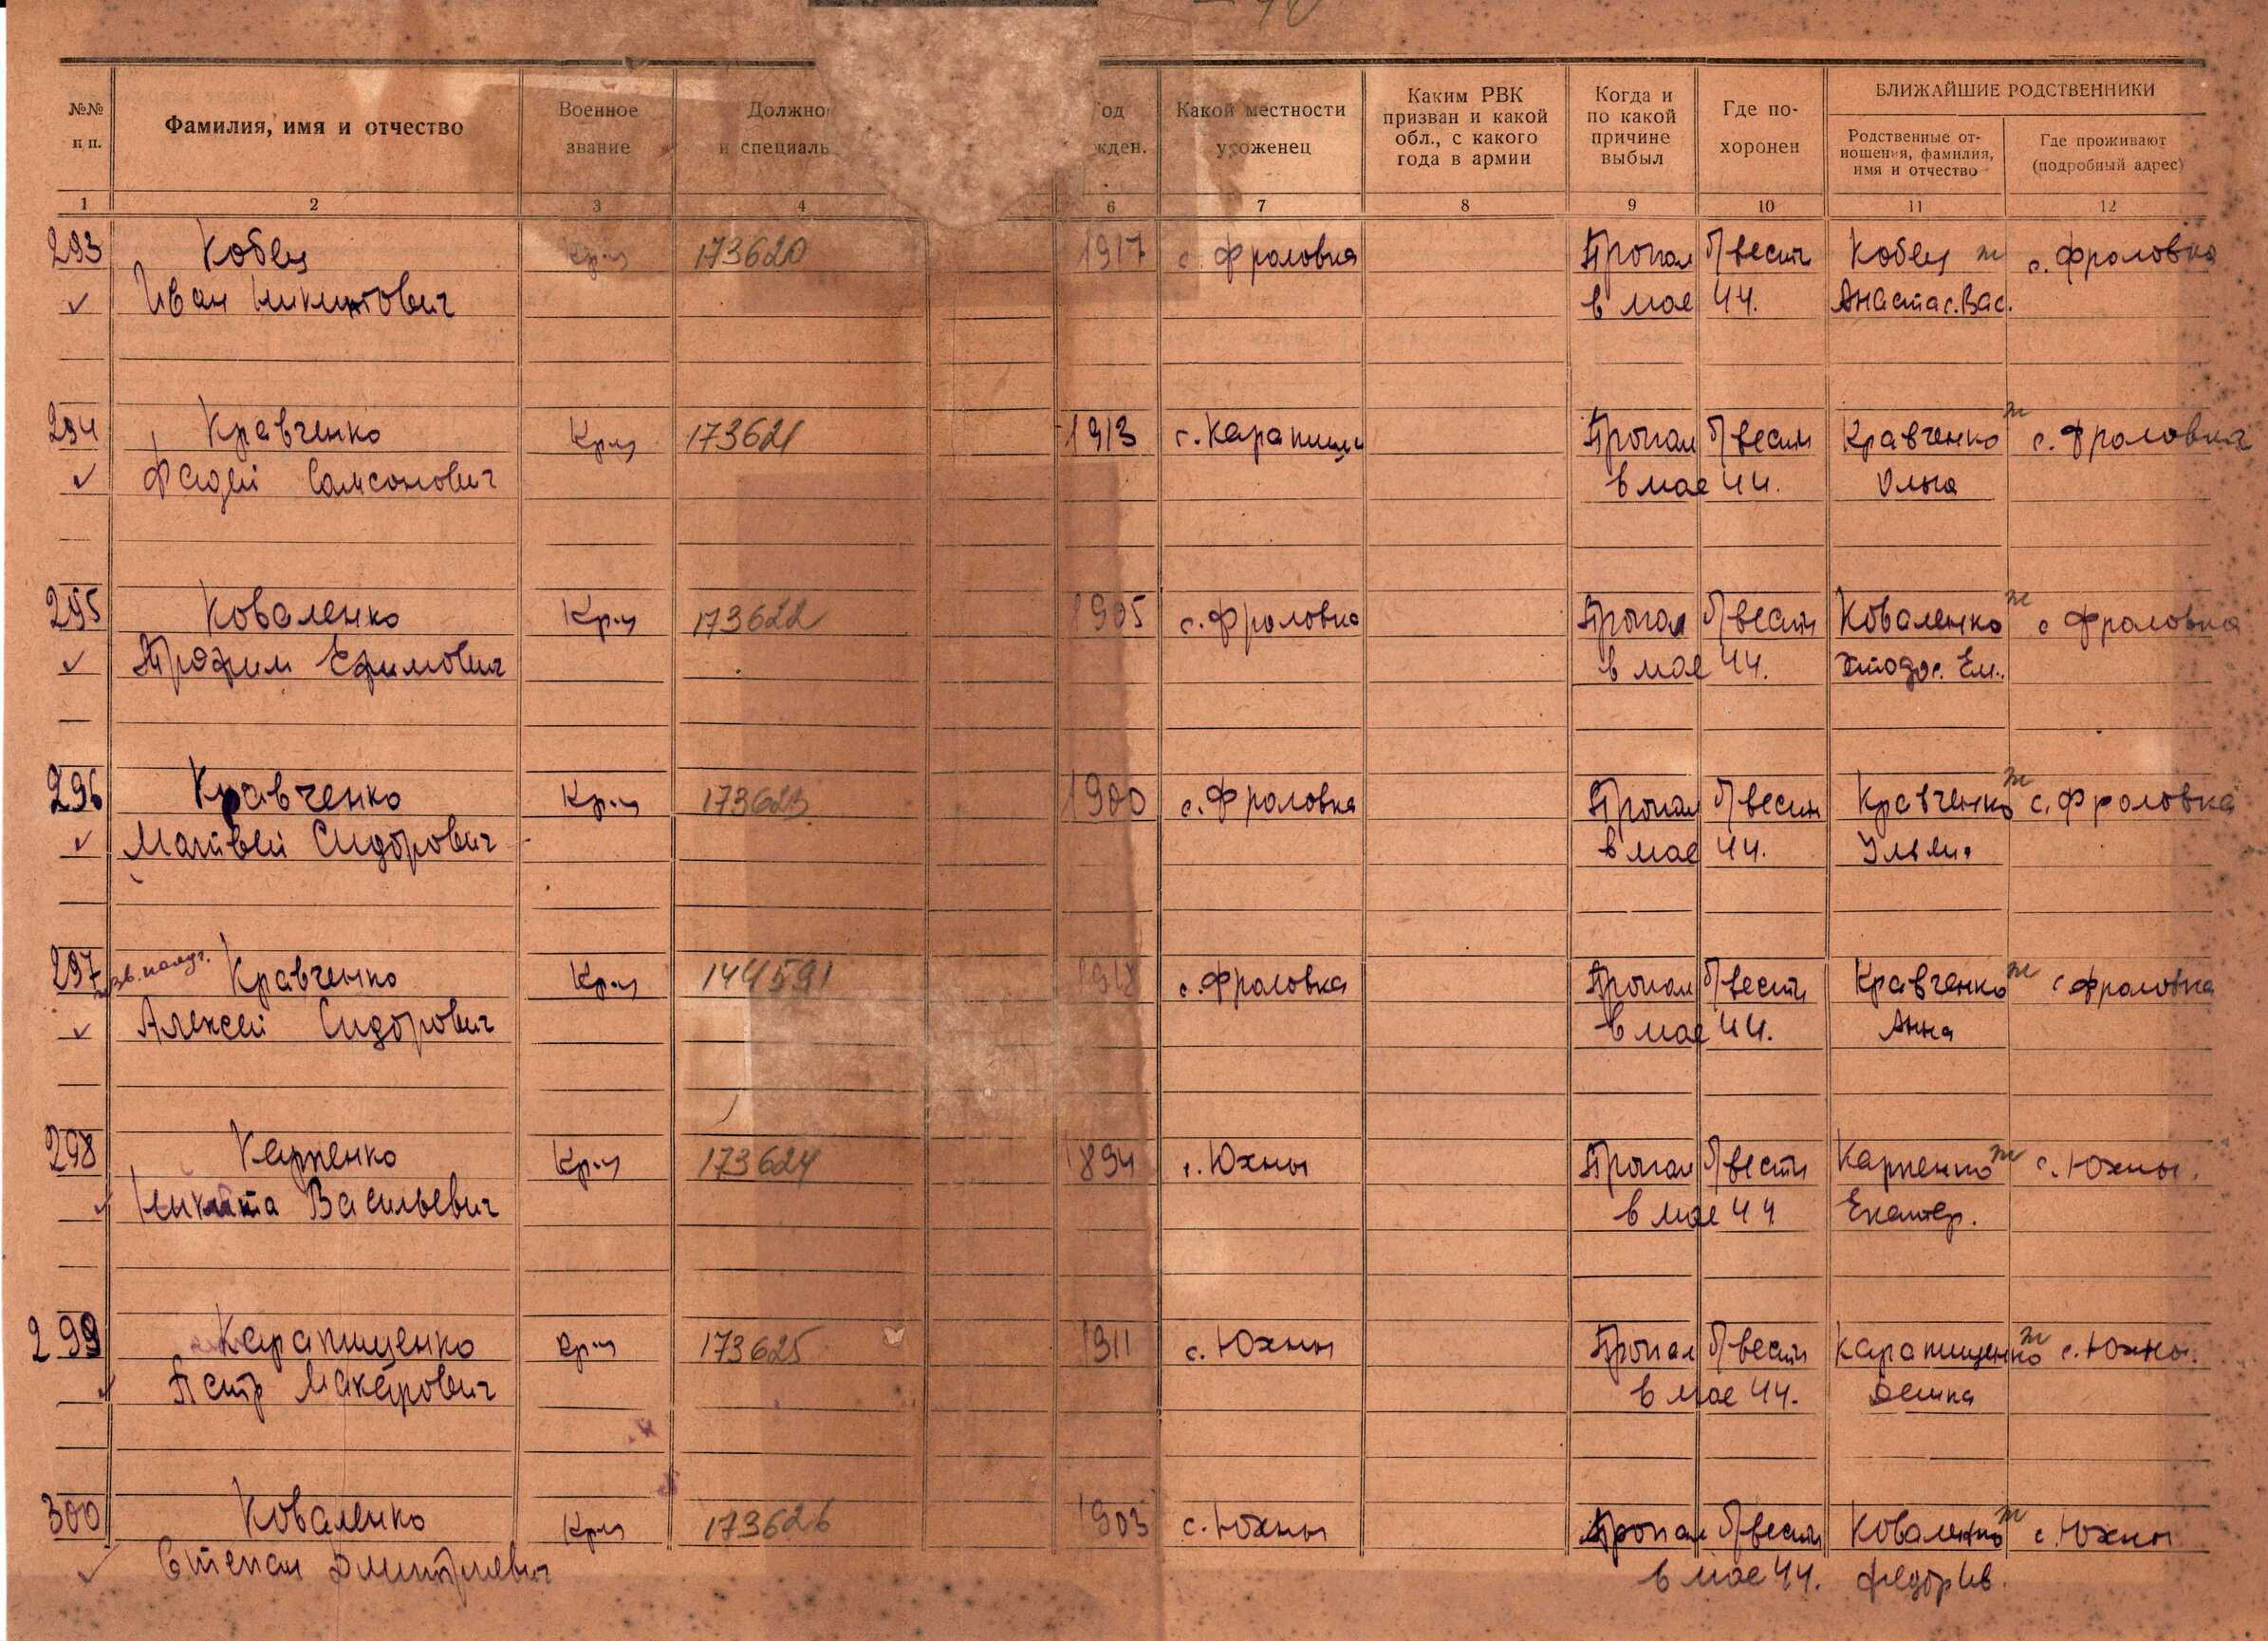 №№ п п.
Фамилия, имя и отчество
Военное звание
Должно
и специаль
од
жден.
Какой местности уроженец
Каким РВК призван и какой обл., с какого года в армии
Когда и по какой причине выбыл
Где по-хоронен
БЛИЖАЙШИЕ РОДСТВЕННИКИ
Родственные от-ношения, фамилия, имя и отчество
Где проживают (подробный адрес)
1 2 3 4 6 7 8 9 10 11 12
293 Кобец Кр-ц 173620 1917 с. Фроловка Пропал б/вести Кобец ж с. Фроловка
Иван Никитович в мае 44. Анастас. Вас.
294 Кравченко Кр-ц 173621 1913 с. Карапиши Пропал б/вести Кравченко ж с. Фроловка
Фадей Самсонович в мае 44. Ольга
295 Коваленко Кр-ц 173622 1905 с. Фроловка Пропал б/вести Коваленко ж с Фроловка
Трофим Ефимович в мае 44. Ем.
296 Кравченко Кр-ц 173623 1900 с. Фроловка Пропал б/вести Кравченко ж с. Фроловка
Матвей Сидорович в мае 44.
297 Кравченко Кр-ц 144591 с. Фроловка Пропал б/вести Кравченко ж с Фроловка
Алексей Сидорович в мае 44. Анна
298 Карпенко Кр-ц 173624 1894 с. Юхны Пропал б/вести Карпенко ж с. Юхны.
Никита Васильевич в мае 44 Екатер.
299 Карапищенко Кр-ц 173625 1911 с. Юхны Пропал б/вести Карапищенко ж с. Юхны.
Петр Макарович в мае 44.
300 Коваленко Кр-ц 173626 1903 с. Юхны Пропал б/вести Коваленко ж с. Юхны
Степан Дмитриевич в мае 44. Федор Ив.